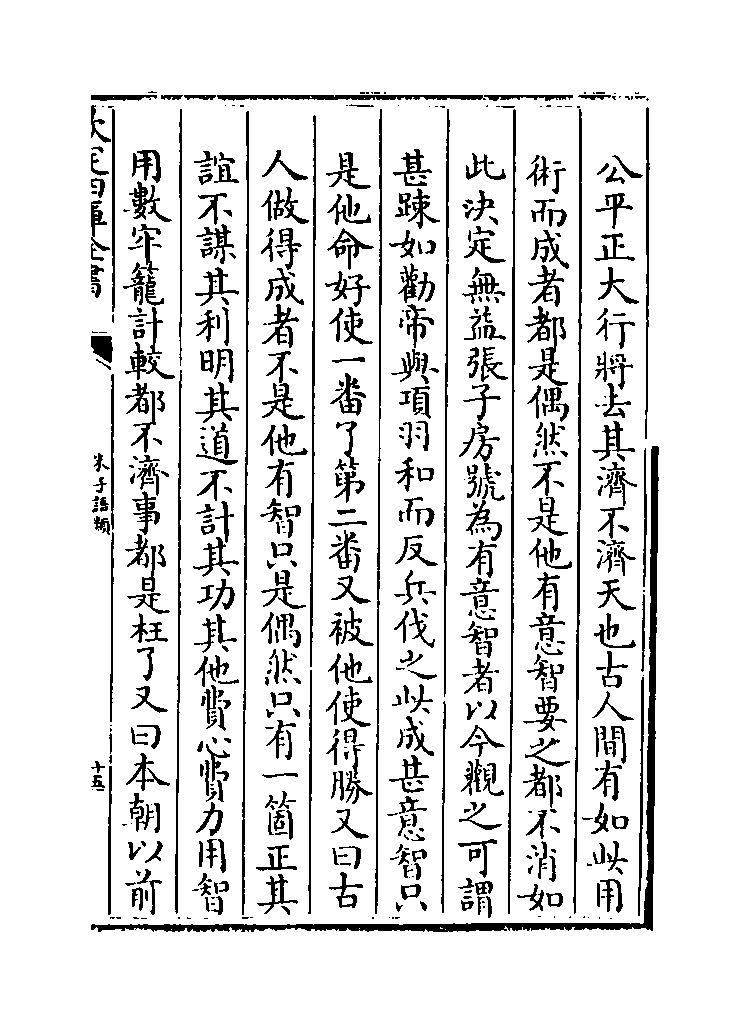 公平正大行將去其濟不濟天也古人間有如此用
術而成者都是偶然不是他有意智要之都不消如
此決定無益張子房號為有意智者以今觀之可謂
甚踈如勸帝與項羽和而反兵伐之此成甚意智只
是他命好使一番了第二番又被他使得勝又曰古
人做得成者不是他有智只是偶然只有一箇正其
誼不謀其利明其道不計其功其他費心費力用智
用數牢籠計較都不濟事都是枉了又曰本朝以前
欽定四庫全書
朱子語類
十五